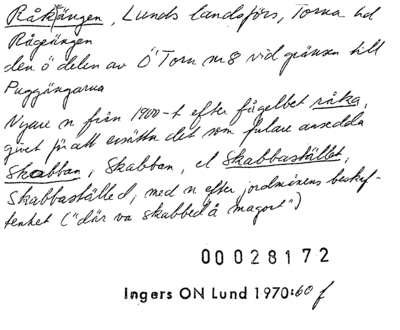 Råkängen, Lunds landsförs, Torna hd
Rågeängen
den ö delen av Ö Torn nr 8 vid gränsen till
Puggängarna
Nyare n från 1900-t efter fågelbet råka,
givet för att ersätta det som fulare ansedda
Skabban, Skabban, el Skabbastället,
Skabbaställed, med n efter jordmånens beskaf-
fenhet ("där va skabbed å magort")
00028172
Ingers ON Lund 1970:60 f